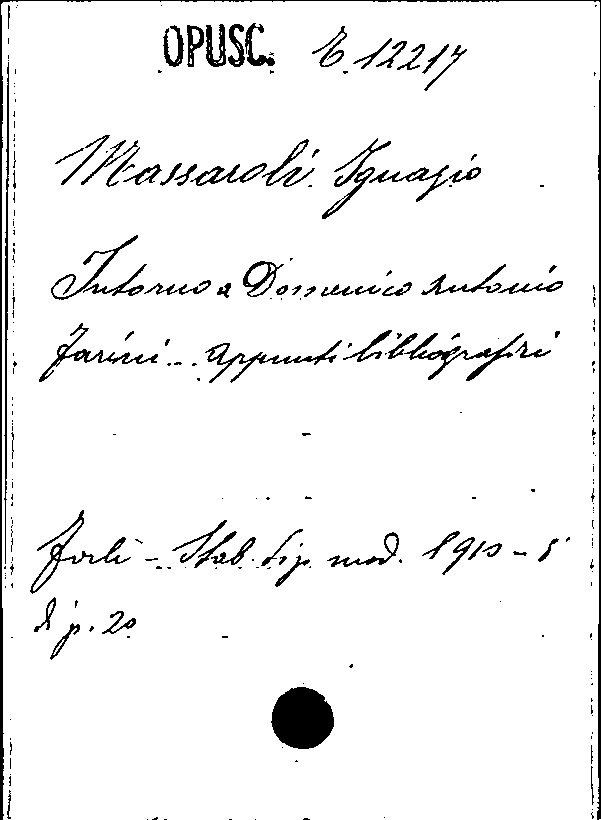 OPUSC. E. 12217
Massaroli Ignazio
Intorno a Domenico Antonio
Farini - Appunti bibliografici
Forlì - Stab. tip. mod. 1910 - 8°
di p. 20